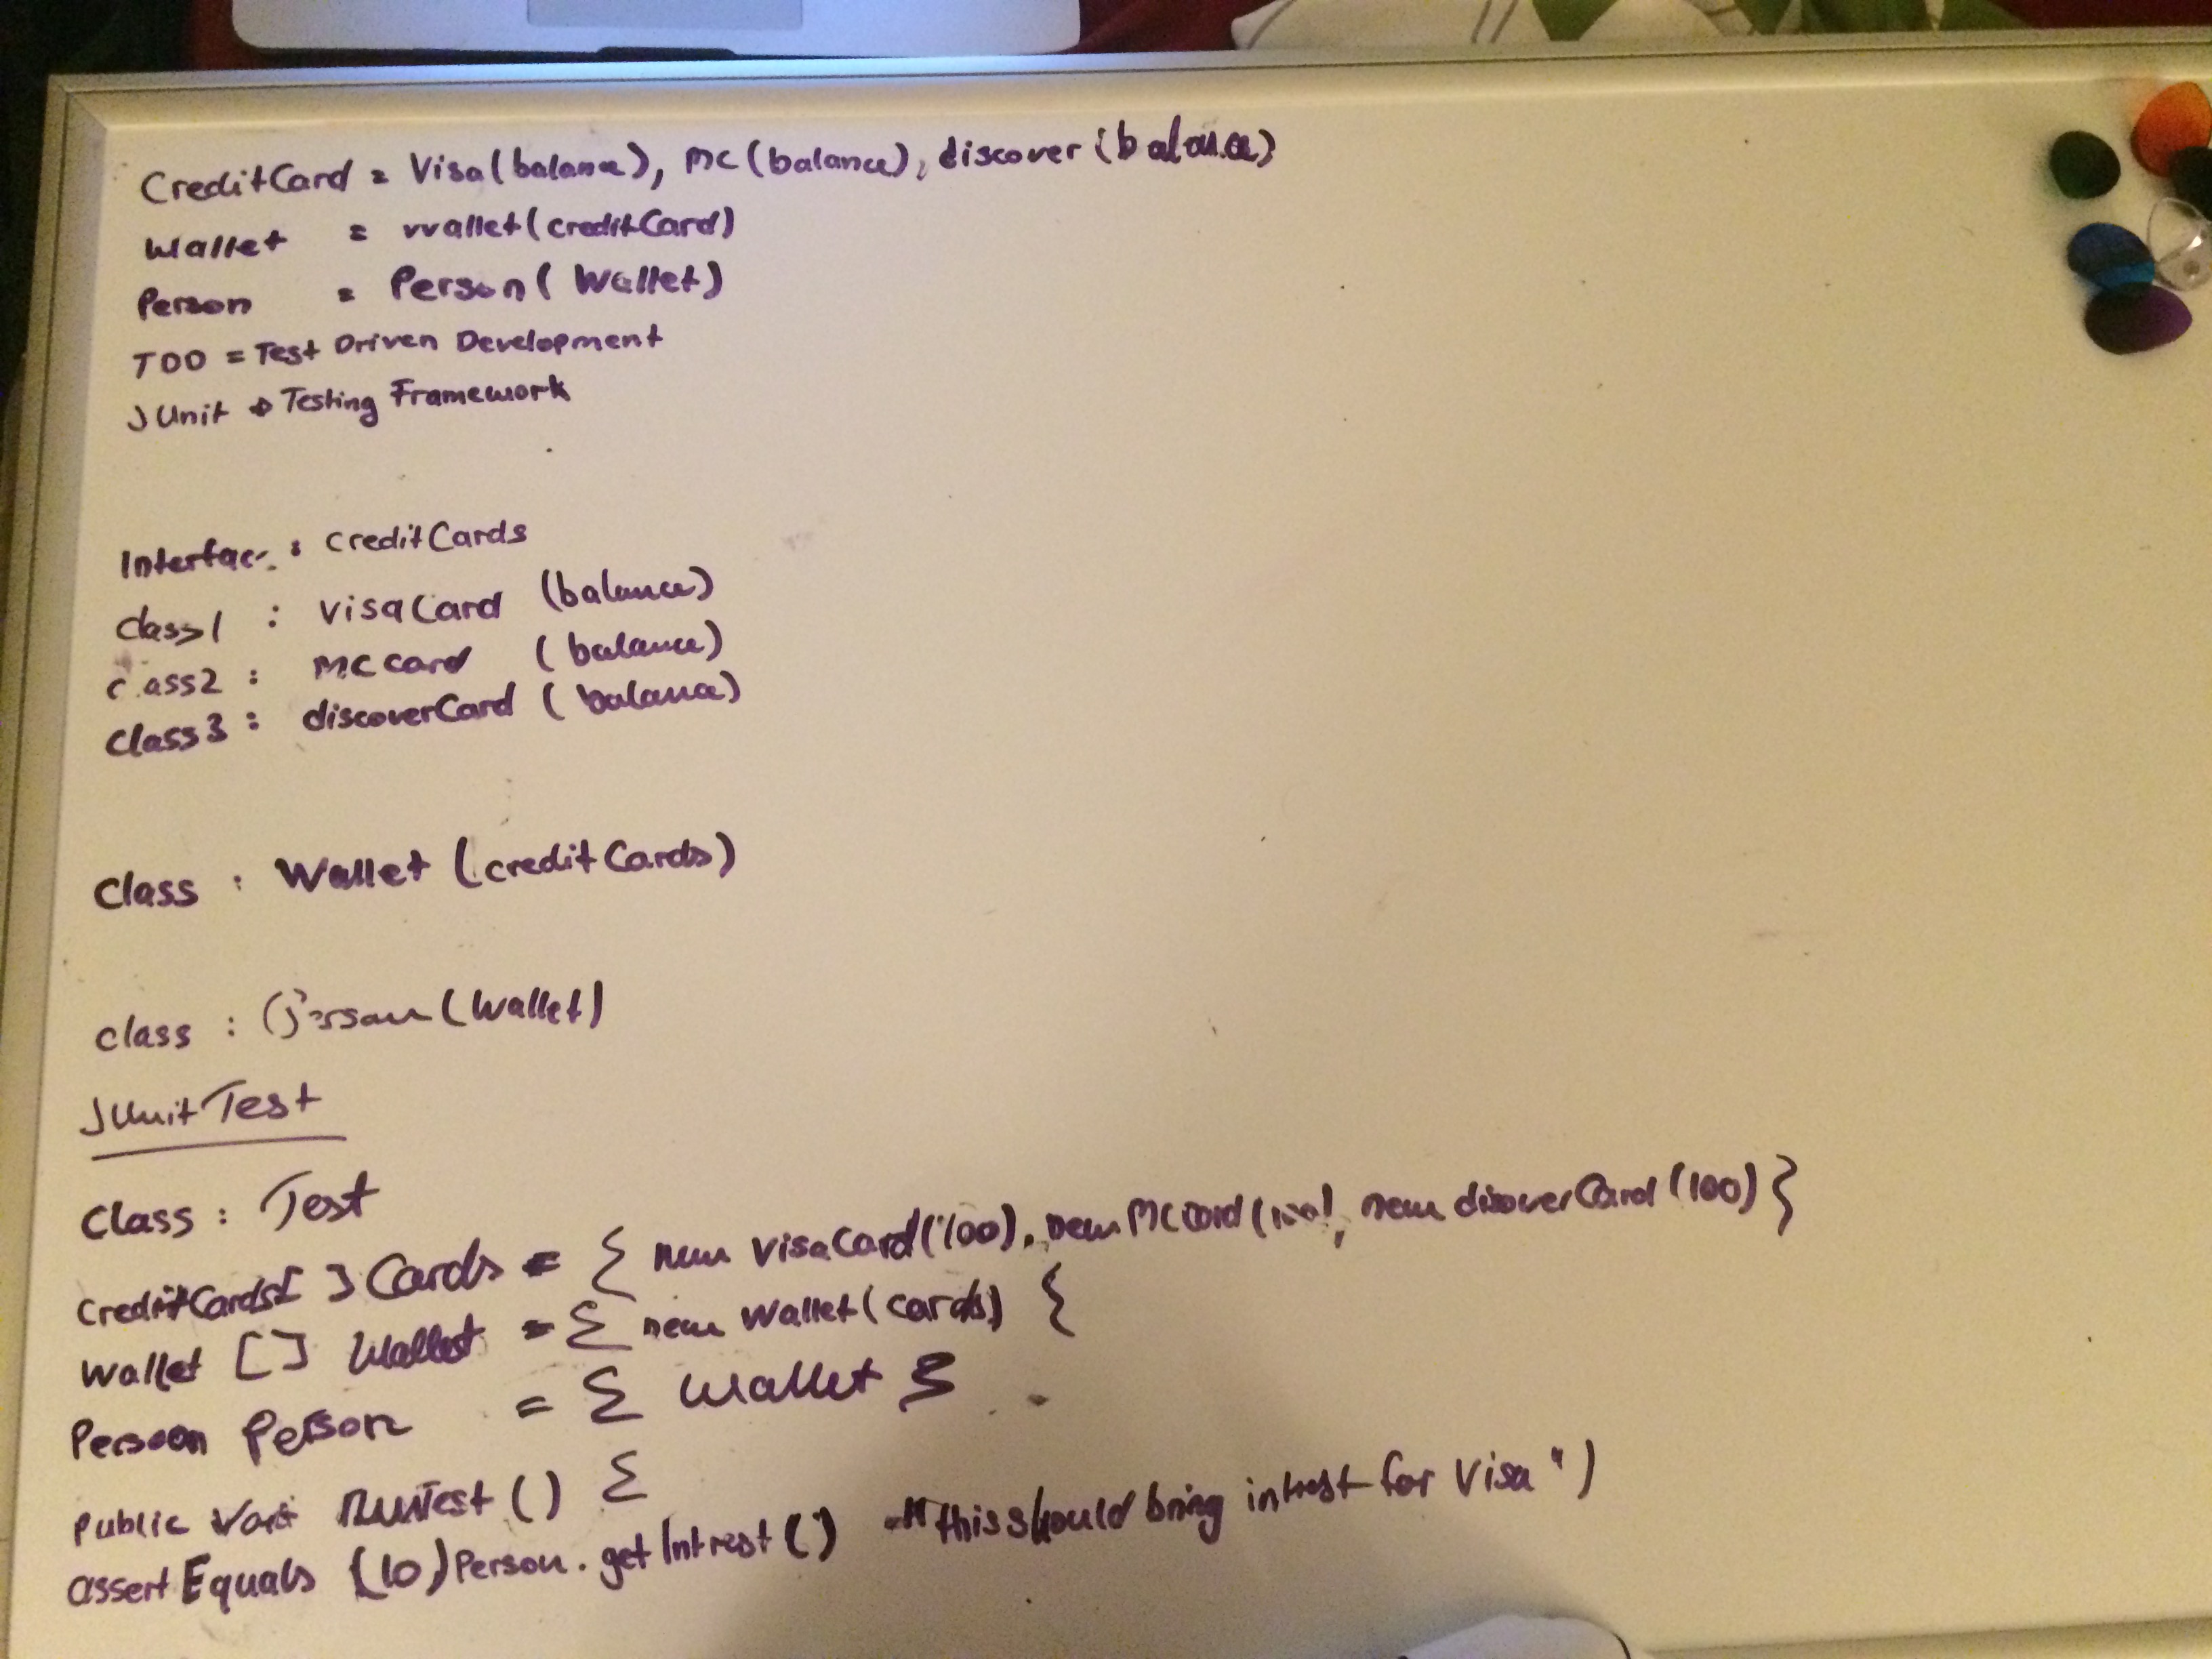 CreditCard = Visa(balance), MC(balance), discover(balance)
Wallet = wallet(creditCard)
Person = Person( Wallet)
TDD = Test Driven Development
JUnit → Testing Framework
Interface : creditCards
class1 : visaCard (balance)
class2 : MCcard (balance)
class3 : discoverCard (balance)
Class : Wallet (creditCards)
class : Person(Wallet)
JUnitTest
Class : Test
CreditCards[ ] Cards = { new visaCard(100), new MCCard(100), new disoverCard(100) }
Wallet [] Wallet = { new Wallet(cards) {
Person Person = { Wallet }
public void RunTest () {
assertEquals (10) Person.getIntrest() "this should bring intrest for Visa")